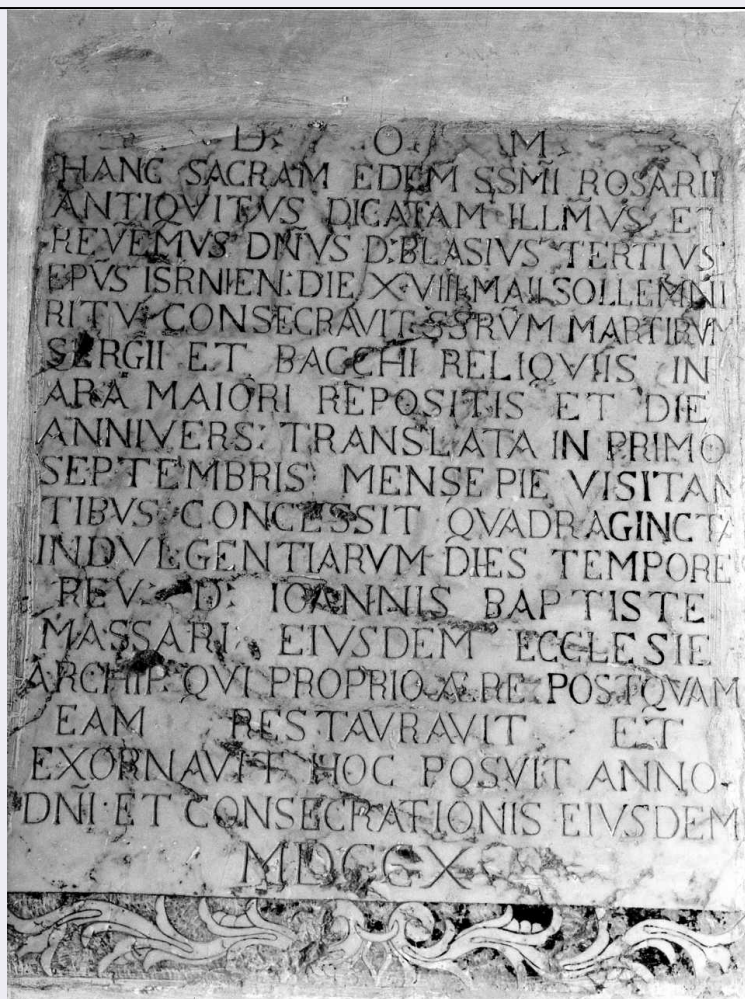 D. O. M.
HANC SACRAM EDEM SSM̃I ROSARII
ANTIQVITVS DICATAM ILLM̃VS ET
REVEM̃VS DÑVS D:BLASIVS TERTIVS
EPṼS ISRNIEN: DIE XVIII MAII SOLLEMNI
RITV CONSECRAVIT SSRṼM MARTIRVM
SERGII ET BACCHI RELIQVIIS IN
ARA MAIORI REPOSITIS ET DIE
ANNIVERS: TRANSLATA IN PRIMO
SEPTEMBRIS MENSE PIE VISITAN
TIBVS CONCESSIT QVADRAGINCTA
INDVLGENTIARVM DIES TEMPORE
REV: D: IOANNIS BAPTISTE
MASSARI EIVSDEM ECCLESIE
ARCHIP. QVI PROPRIO ÆRE POSTQVAM
EAM RESTAVRAVIT ET
EXORNAVIT HOC POSVIT ANNO
DÑI ET CONSECRATIONIS EIVSDEM